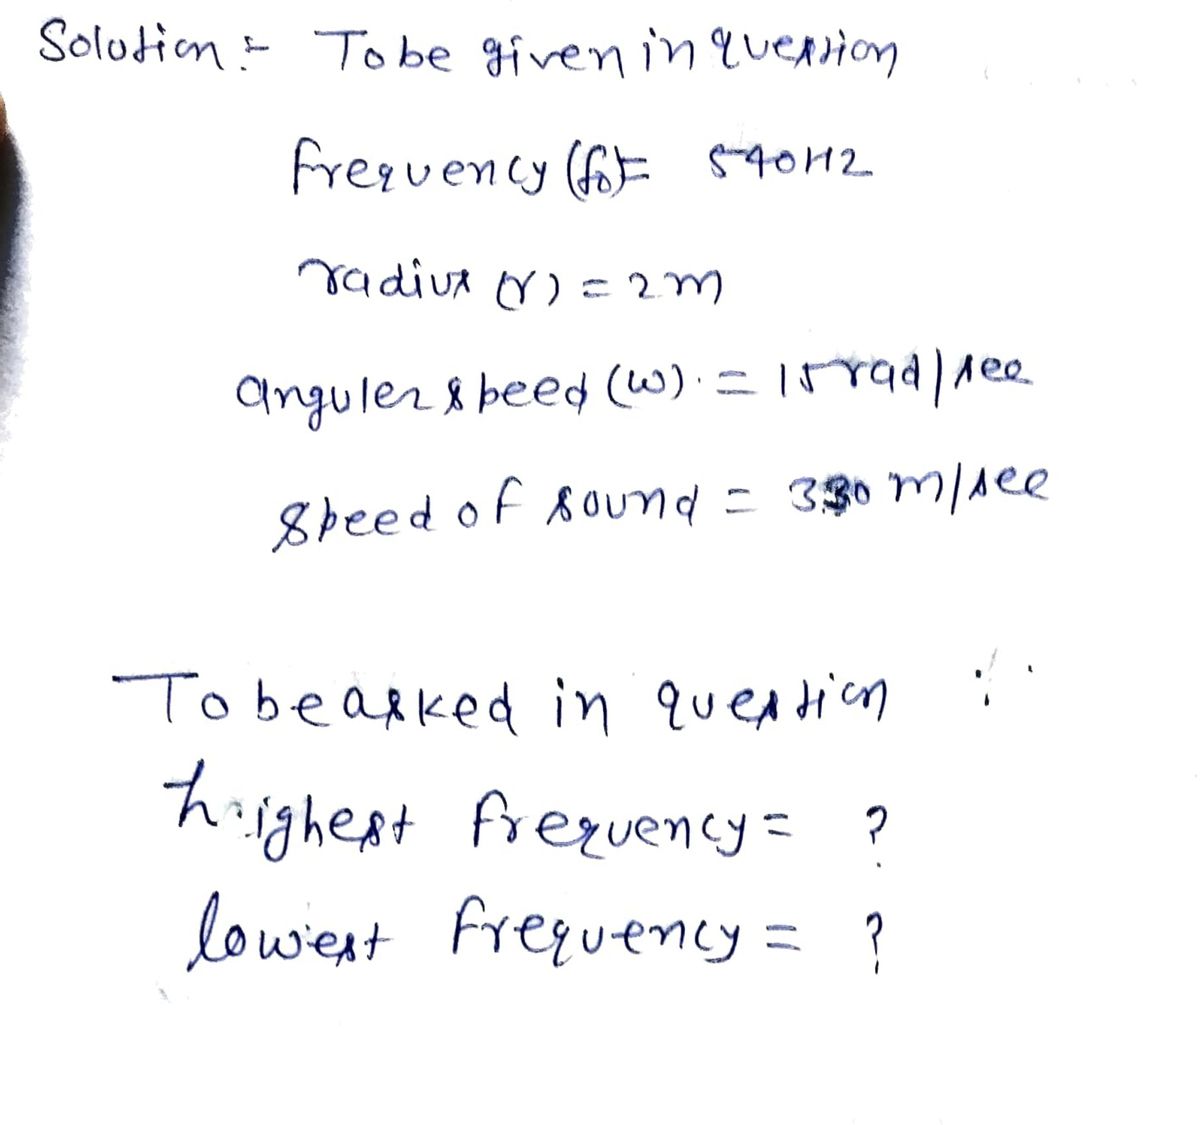 Solution :- To be given in question
frequency (f₀) = 540Hz
radius (r) = 2m
anguler speed (ω) = 15 rad/sec
speed of sound = 330 m/sec
To be asked in question :
highest frequency = ?
lowest frequency = ?